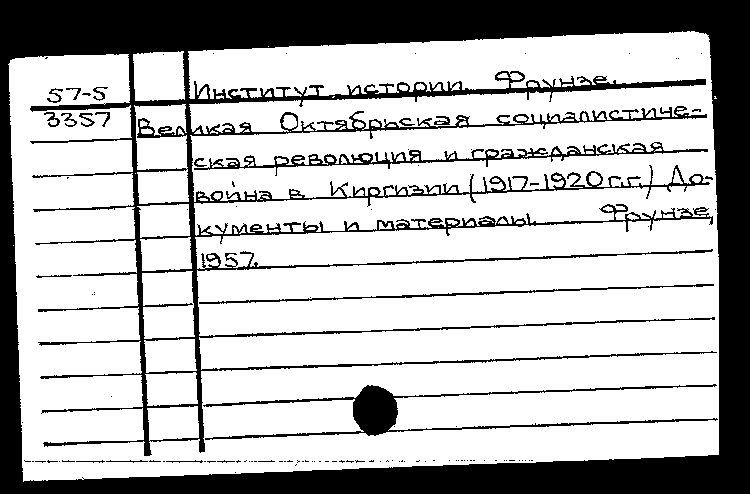 57-5 Институт истории. Фрунзе.
3357 Великая Октябрьская социалистиче-
ская революция и гражданская
война в Киргизии (1917-1920 г.г.) До-
кументы и материалы. Фрунзе,
1957.